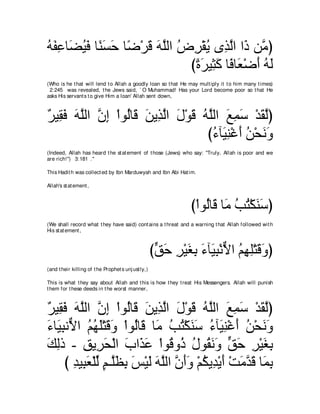 (مَّن ذَا الَّذِى يُقْرِضُ اللَّهَ قَرْضًا حَسَنًا فَيُضَاعِفَهُ
لَهُ أَضْعَافًا كَثِيرَةً)
(Who is he that will lend to Allah a goodly loan so that He may multiply it to him many times)
2:245 was revealed, the Jews said, `O Muhammad! Has your Lord become poor so that He
asks His servants to give Him a loan' Allah sent down,
(لَّقَدْ سَمِعَ اللَّهُ قَوْلَ الَّذِينَ قَالُواْ إِنَّ اللَّهَ فَقِيرٌ
وَنَحْنُ أَغْنِيَآءُ)
(Indeed, Allah has heard the statement of those (Jews) who say: "Truly, Allah is poor and we
are rich!'') 3:181 .''
This Hadith was collected by Ibn Marduwyah and Ibn Abi Hatim.
Allah's statement,
(سَنَكْتُبُ مَا قَالُواْ)
(We shall record what they have said) contains a threat and a warning that Allah followed with
His statement,
(وَقَتْلِهِمُ الاٌّنبِيَآءَ بِغَيْرِ حَقٍّ)
(and their killing of the Prophets unjustly,)
This is what they say about Allah and this is how they treat His Messengers. Allah will punish
them for these deeds in the worst manner,
(لَّقَدْ سَمِعَ اللَّهُ قَوْلَ الَّذِينَ قَالُواْ إِنَّ اللَّهَ فَقِيرٌ
وَنَحْنُ أَغْنِيَآءُ سَنَكْتُبُ مَا قَالُواْ وَقَتْلَهُمُ الاٌّنبِيَآءَ
بِغَيْرِ حَقٍّ وَنَقُولُ ذُوقُواْ عَذَابَ الْحَرِيقِ - ذَلِكَ
بِمَا قَدَّمَتْ أَيْدِيكُمْ وَأَنَّ اللَّهَ لَيْسَ بِظَلَّـمٍ لِّلْعَبِيدِ )